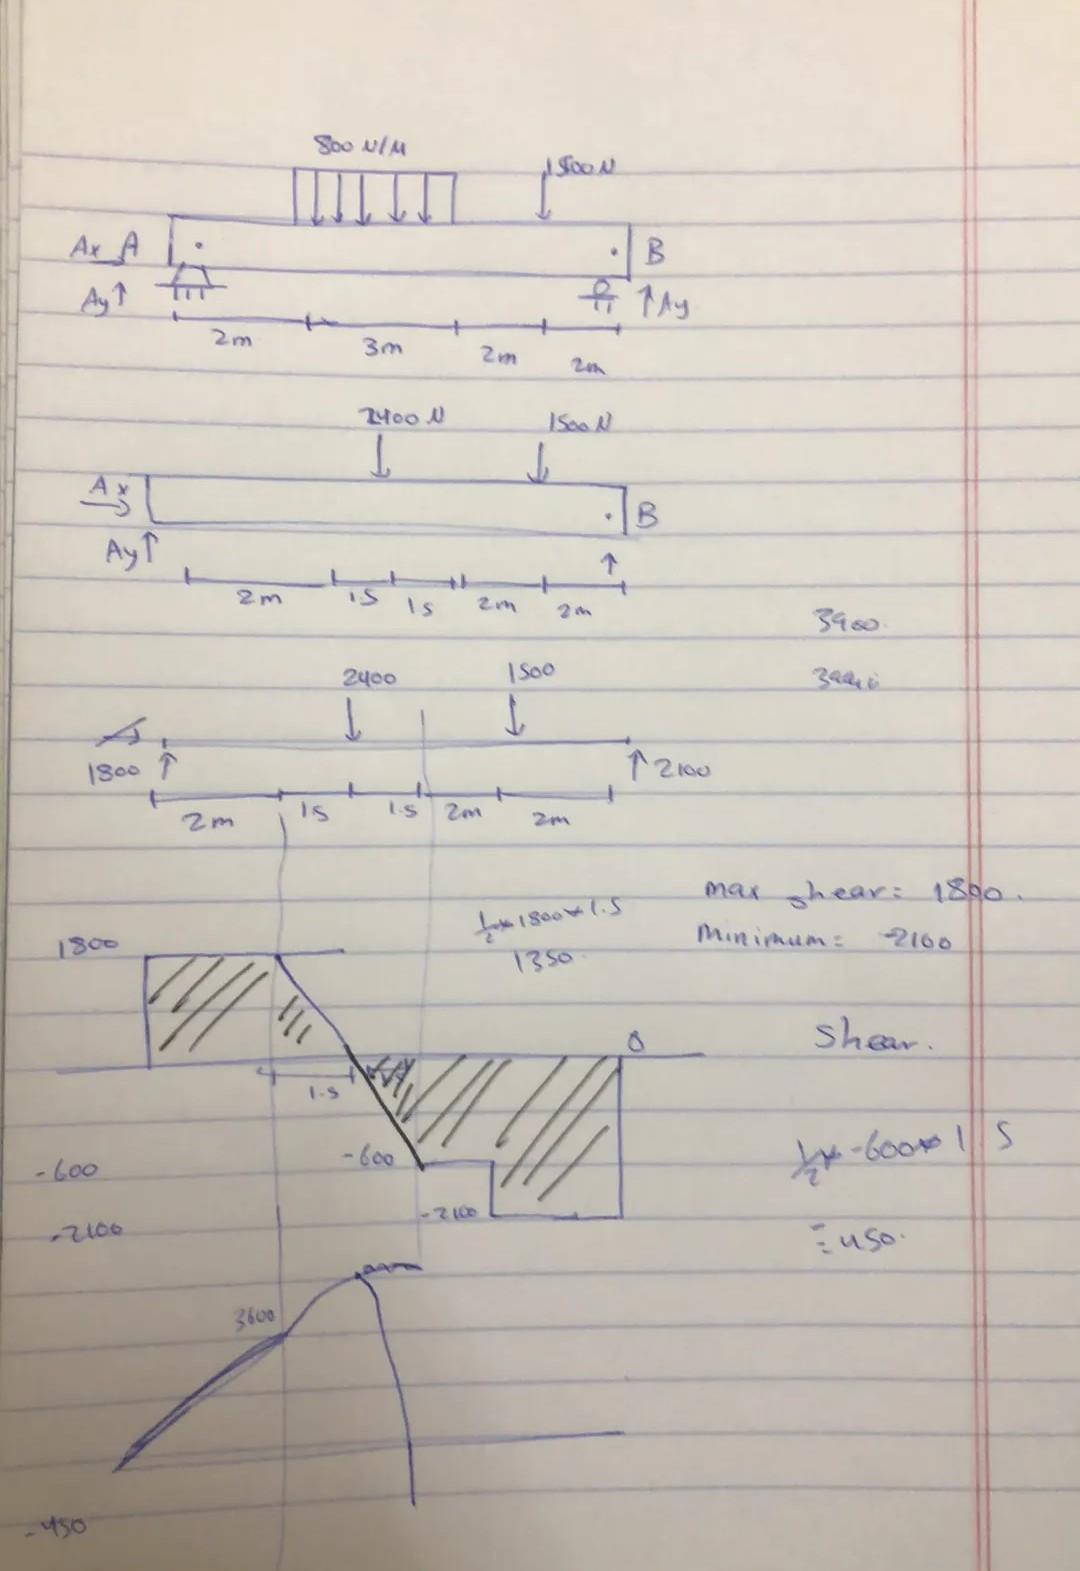 800 N/M
1500N
Ax A
B
Ay↑
↑Ay
2m
3m
2m
2m
2400 N
1500 N
Ax
B
Ay↑
2m
1.5
1.5
2m
2m
3900.
2400
1500
1800
2100
2m
1.5
1.5
2m
2m
max shear: 1800.
½ * 1800 * 1.5
1350.
minimum = -2100
1800
0
Shear.
1.5
-600
-600
½ * -600 * 1.5
-2100
-2100
= 450.
3600
-450